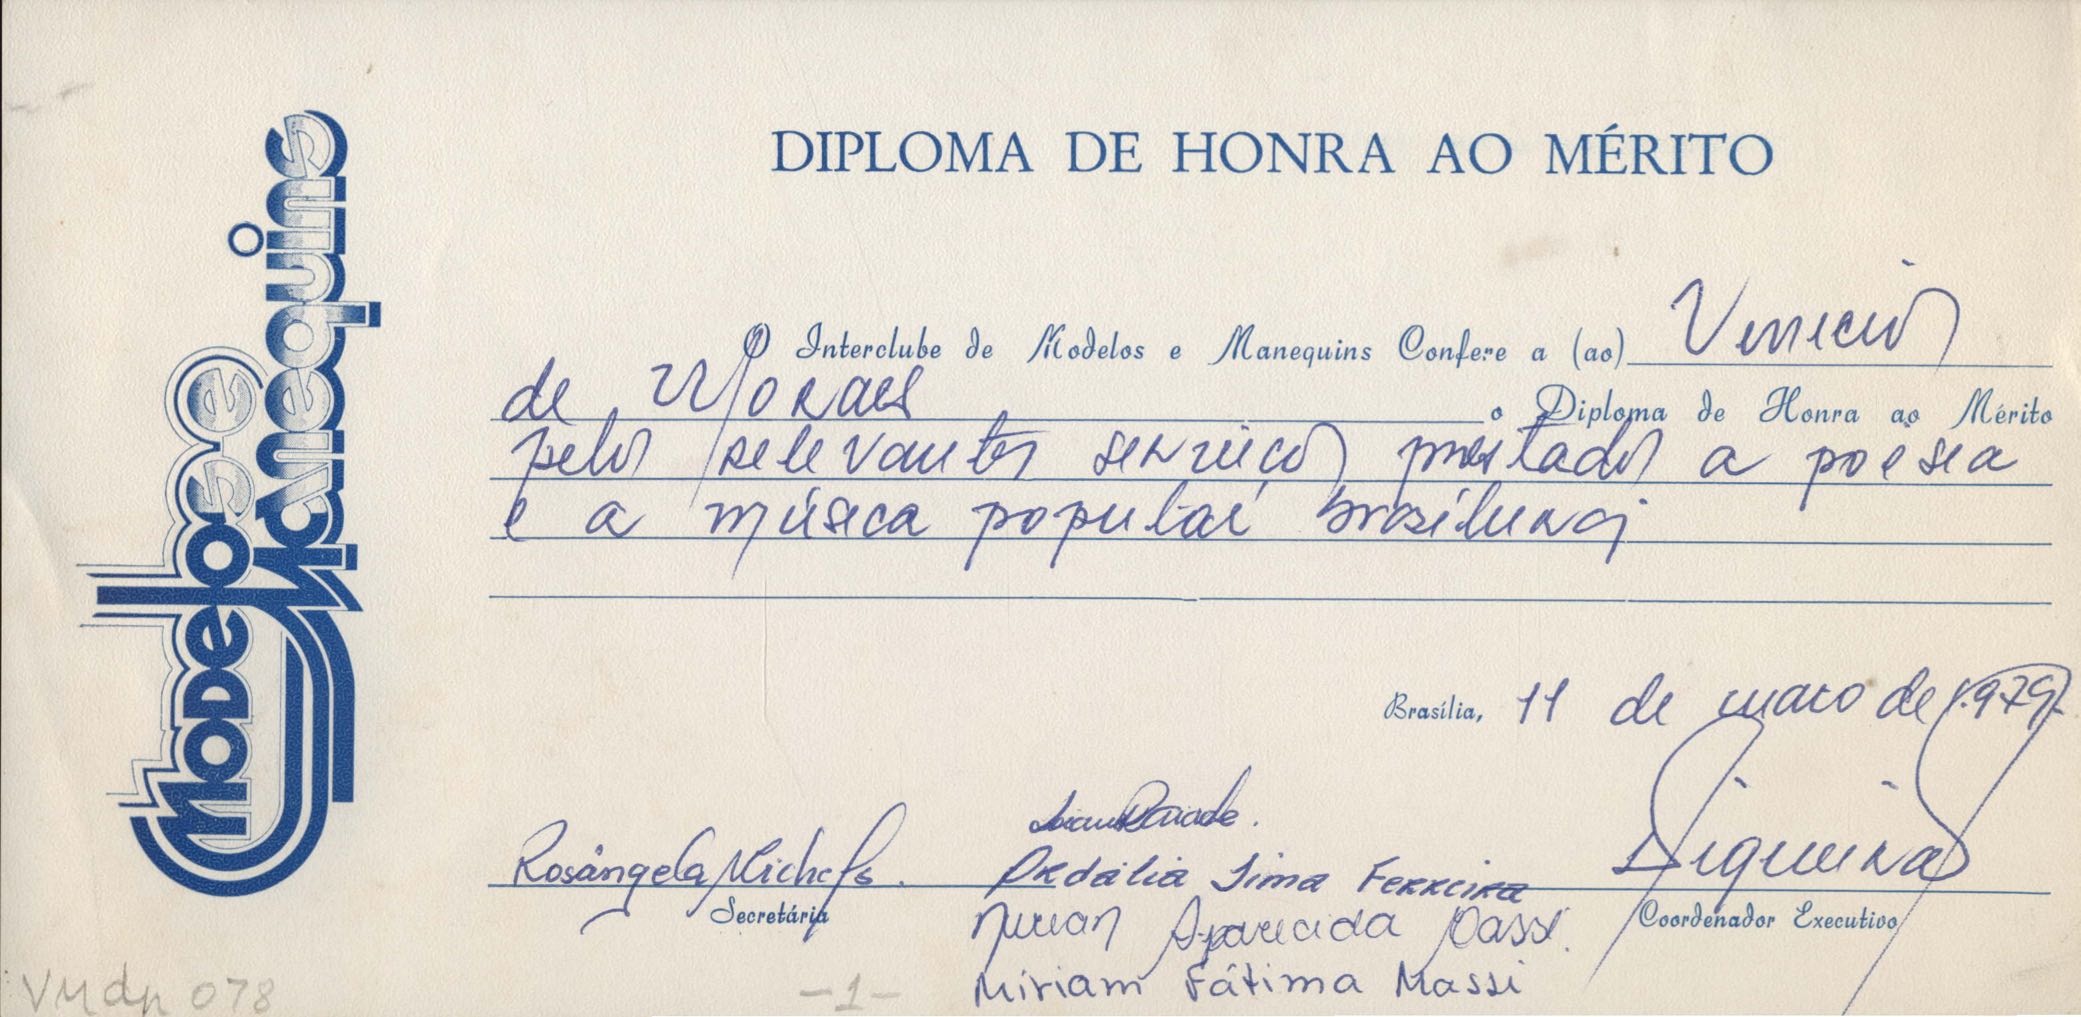 Modelos e Manequins
DIPLOMA DE HONRA AO MÉRITO
O Interclube de Modelos e Manequins Confere a (ao) Vinicius
de Moraes o Diploma de Honra ao Mérito
pelos relevantes serviços prestados a poesia
e a música popular brasileira
Brasília, 11 de maio de 1.979.
Rosângela Michels.
Ordália Lima Ferreira
Siqueira
Secretária
Coordenador Executivo
Mirian Aparecida Passi.
Míriam Fátima Massi
VMdp 078
-1-